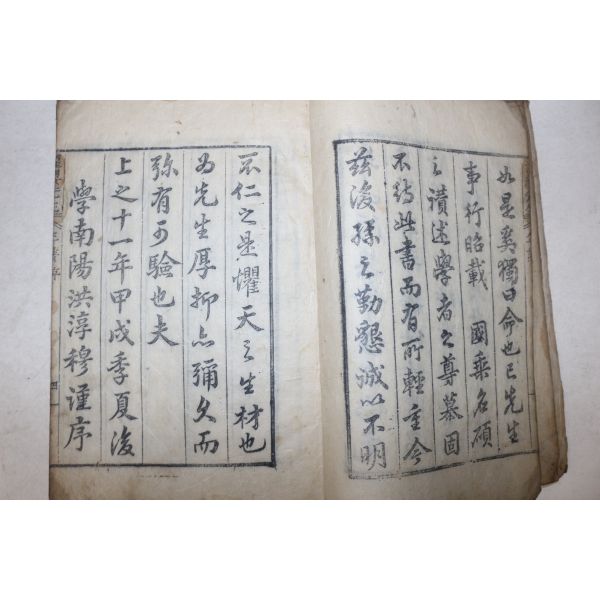 如是奚獨曰命也已先生
事行昭載　國乘名碩
之讚述學者之尊慕固
不待此書而有所輕重今
茲後孫之勤懇誠以不明
不仁之是懼天之生材也
為先生厚抑亦彌久而
弥有可驗也夫
上之十一年甲戌季夏後
學南陽洪淳穆謹序